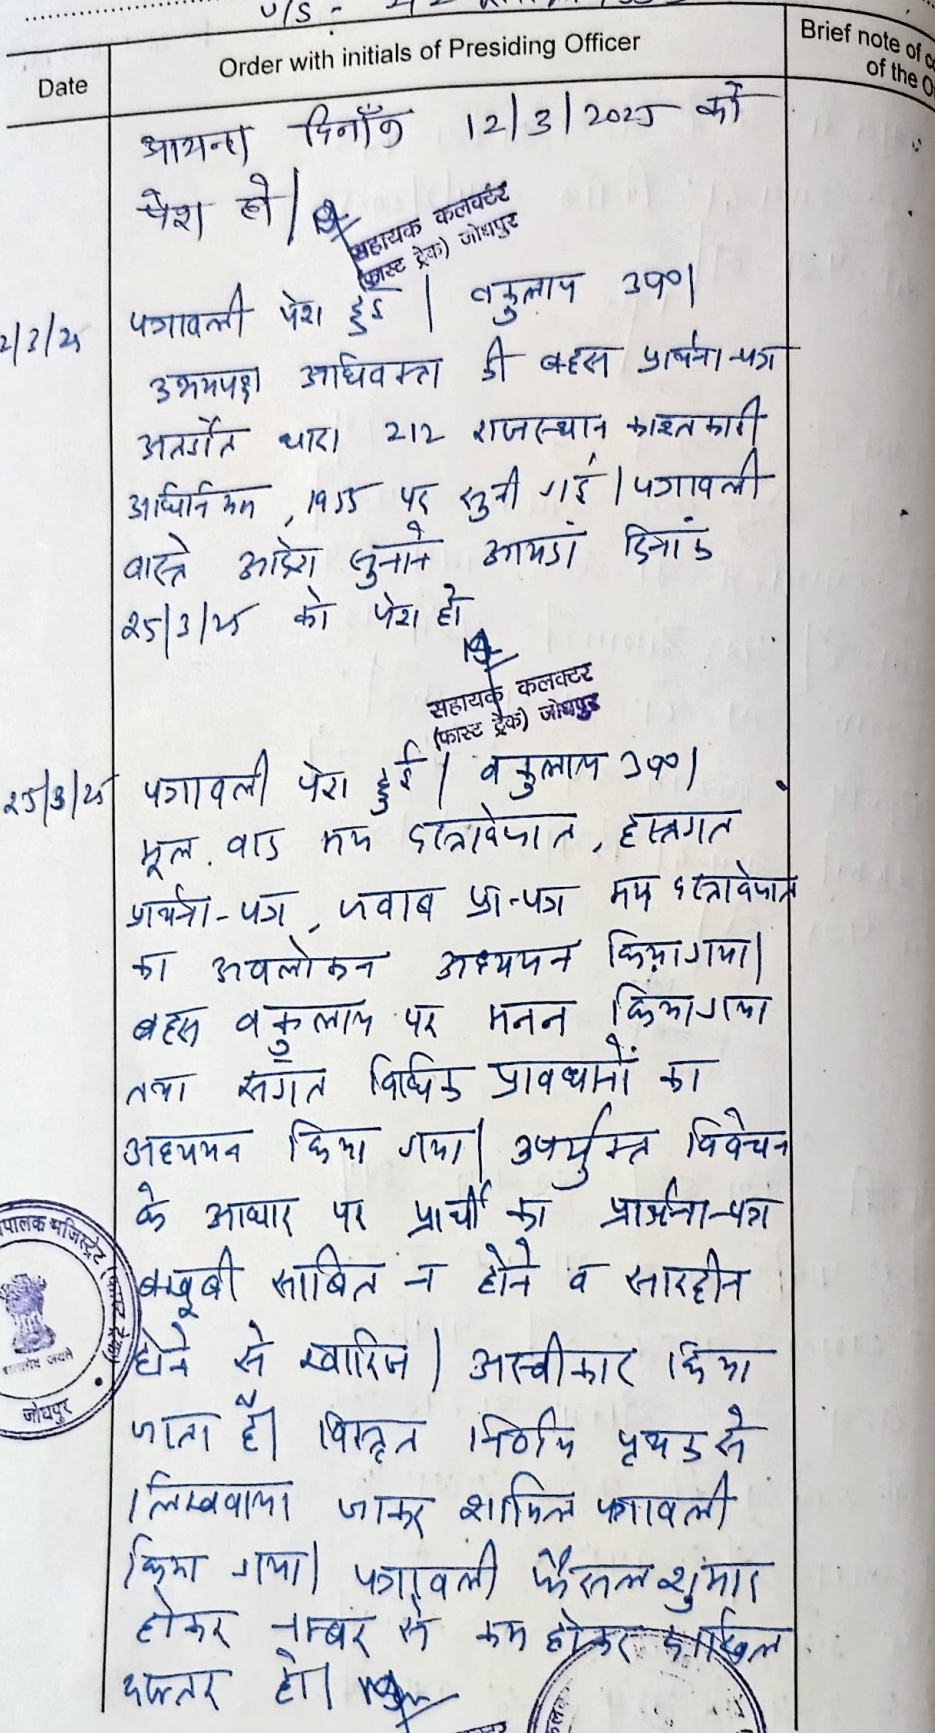 U/S :-
Date
Order with initials of Presiding Officer
Brief note of
of the O
आयन्दा दिनाँक 12/3/2025 को
पेश हो।
सहायक कलक्टर
(फास्ट ट्रेक) जोधपुर
2/3/25
पत्रावली पेश हुई। वकुलाय उप०।
उभयपक्ष अधिवक्ता की बहस प्रार्थना-पत्र
अतर्गत धारा 212 राजस्थान काश्तकारी
अधिनियम, 1955 पर सुनी गई। पत्रावली
वास्ते आदेश सुनाने आयंदा दिनांक
25/3/25 को पेश हो
सहायक कलक्टर
(फास्ट ट्रेक) जोधपुर
25/3/25
पत्रावली पेश हुई। वकुलाय उप०।
मूल वाद मय दस्तावेजात, हस्तगत
प्रार्थना-पत्र, जवाब प्रा-पत्र मय दस्तावेजात
का अवलोकन अध्ययन किया गया।
बहस वकुलाय पर मनन किया गया
तथा सँगत विधिक प्रावधानों का
अध्ययन किया गया। उपर्युक्त विवेचन
के आधार पर प्रार्थी का प्रार्थना-पत्र
बखूबी साबित न होने व सारहीन
होने से खारिज / अस्वीकार किया
जाता है। विस्तृत निर्णय पृथक से
लिखवाया जाकर शामिल पत्रावली
किया गया। पत्रावली फैसल शुमार
होकर नम्बर से कम होकर दाखिल
दफ्तर हो।
पालक मजिस्ट्रेट (फास्ट ट्रेक)
सत्यमेव जयते
जोधपुर